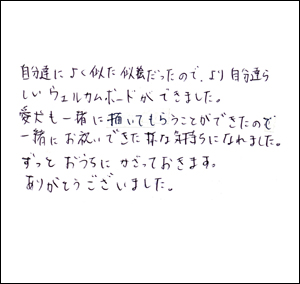 自分達によく似た似絵だったので、より自分達ら
しいウェルカムボードができました。
愛犬も一緒に描いてもらうことができたので
一緒にお祝いできた様な気持ちになれました。
ずっとおうちにかざっておきます。
ありがとうございました。